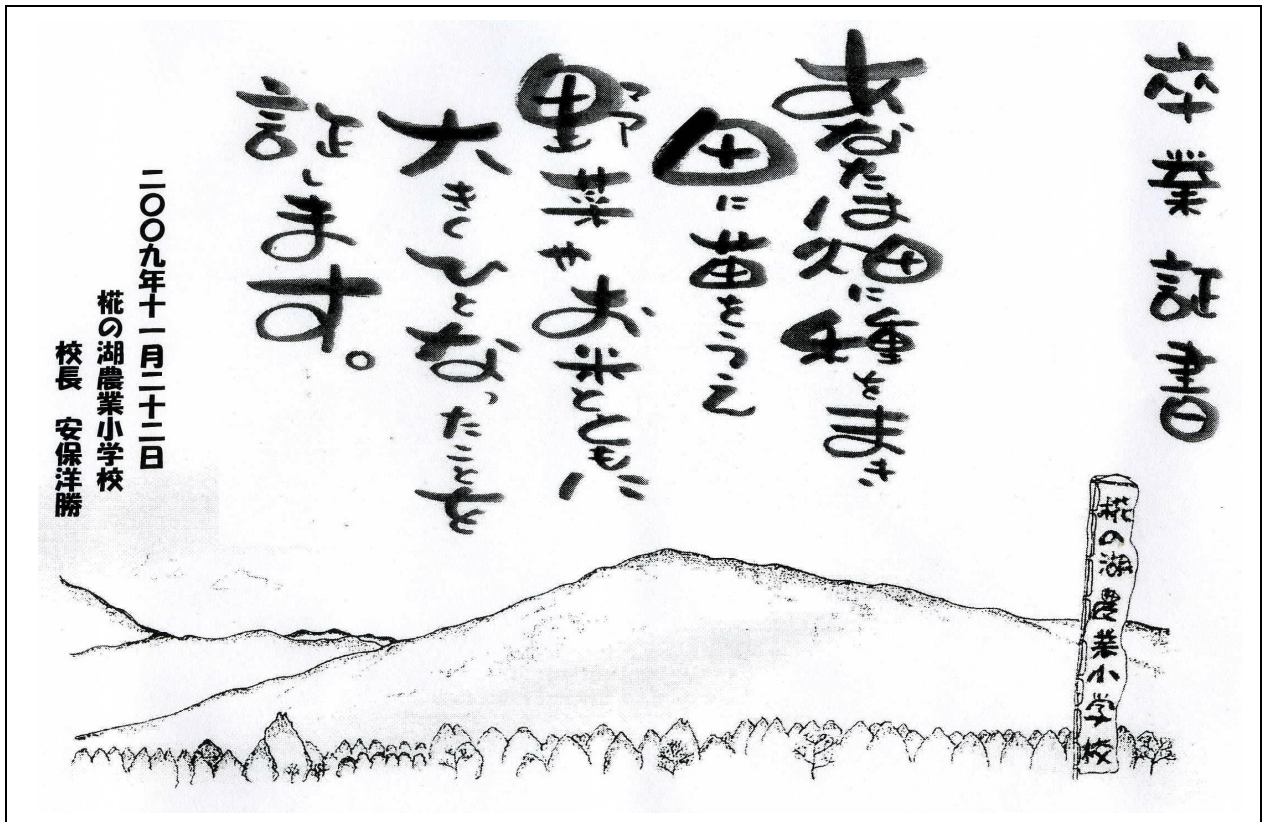 卒業証書
あなたは畑に種をまき
田に苗をうえ
野菜やお米とともに
大きくひとなったことを
証します。
二〇〇九年十一月二十二日
椛の湖農業小学校
校長 安保洋勝
椛の湖農業小学校